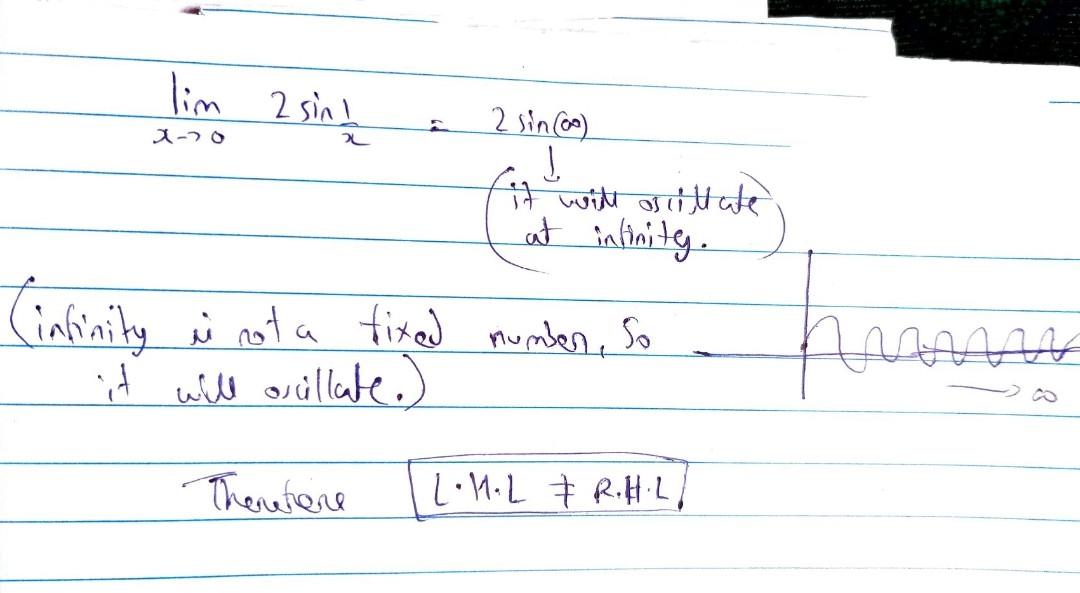 lim 2 sin 1/x = 2 sin(∞)
x→0
↓
(it will oscillate
at infinity.)
(infinity is not a fixed number, So
it will oscillate.)
→ ∞
Therefore L.H.L ≠ R.H.L